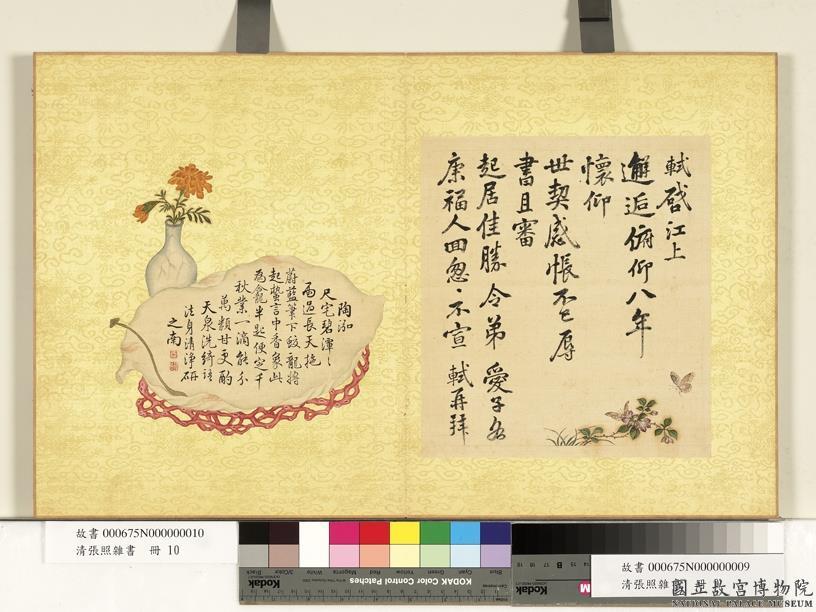 軾啓江上
邂逅俯仰八年
懷仰
世契感悵不已辱
書且審
起居佳勝 令弟 愛子各
康福人回悤悤不宣 軾再拜
陶泓
尺宅碧潭潭
雨過長天拖
蔚藍筆下蛟龍將
起蟄言中香象此
為龕半匙便定千
秋業一滴能分
萬類甘更酌
天泉洗綺語
法身清淨硏
之南
故書 000675N000000010
清張照雜書 冊 10
故書 000675N000000009
清張照雜
國立故宮博物院
NATIONAL PALACE MUSEUM
KODAK Color Control Patches
Kodak
Black
3/Color
White
Magenta
Red
Yellow
Green
Cyan
Blue
Kodak
B
M